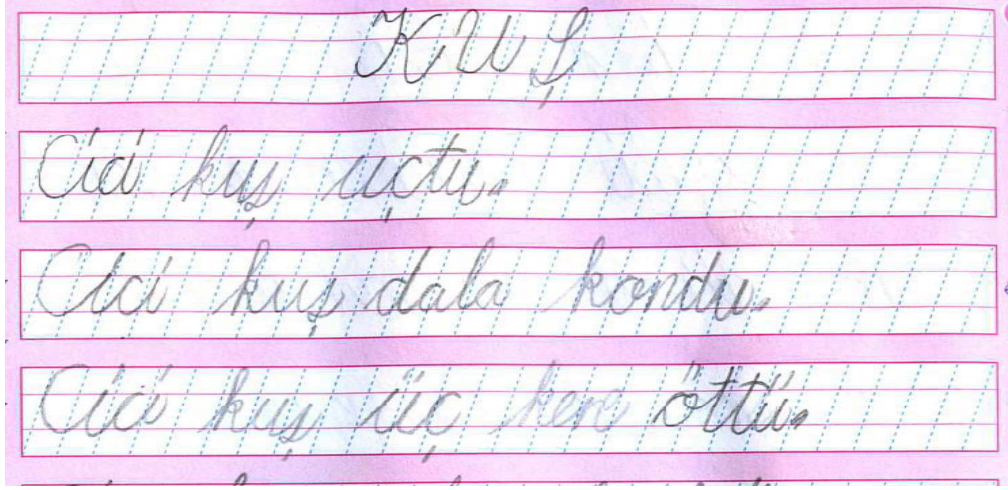 KUŞ
Cici kuş uçtu.
Cici kuş dala kondu.
Cici kuş üç kere öttü.